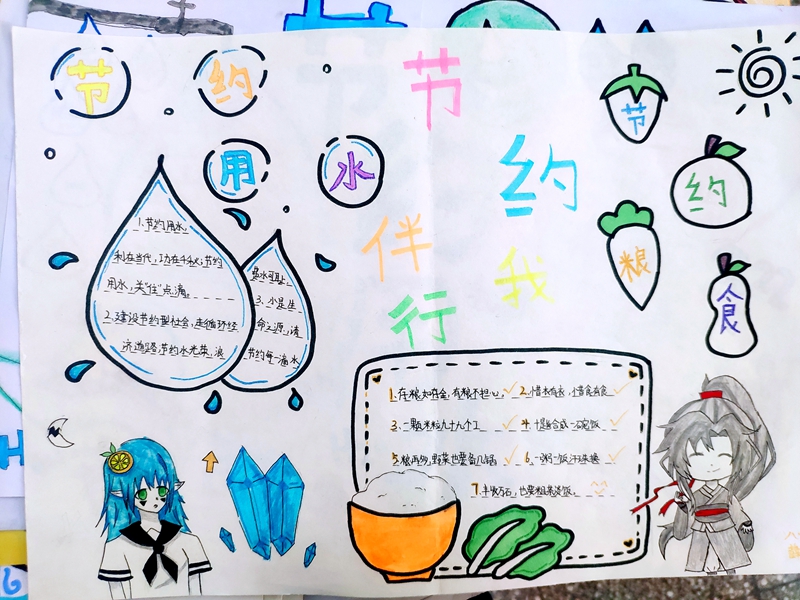 节约用水
节约伴我行
节约粮食
1.节约用水,
利在当代,功在千秋;节约
用水,关“住”点滴。
2.建设节约型社会,走循环经
济道路,节约水光荣,浪
费水可耻。
3、水是生
命之源,请
节约每一滴水
1.存粮如存金,有粮不担心,
2.惜衣有衣,惜食有食
3、一颗米粒九十九个工
4.十指合成一碗饭
5.粮再多,野菜也要备几锅
6、一粥一饭汗珠换
7.丰收万石,也要粗茶淡饭。